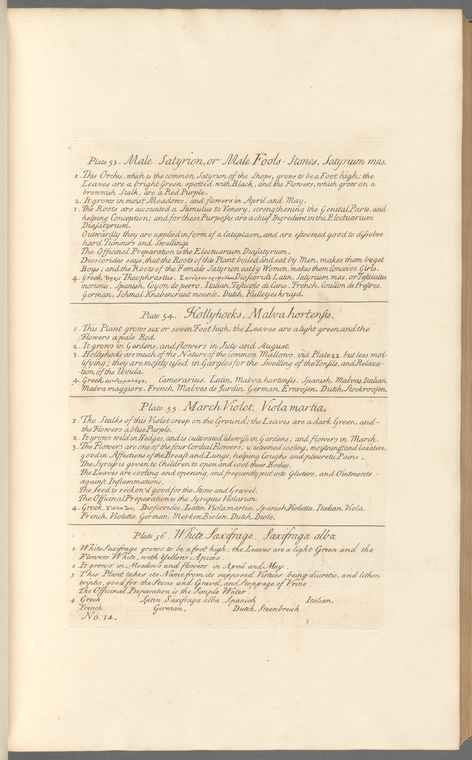 Plate 53. Male Satyrion, or Male Fools-Stones. Satyrium mas.
1. This Orchis, which is the common Satyrion of the Shops, grows to be a Foot high; the
Leaves are a bright Green spotted with Black, and the Flowers, which grow on a
brownish Stalk, are a Red Purple.
2. It grows in most Meadows, and flowers in April and May.
3. The Roots are accounted a Stimulus to Venery, strengthening the Genital Parts, and
helping Conception; and for these Purposes are a chief Ingredient in the Electuarium
Diasatyrium.
Outwardly they are applied in form of a Cataplasm, and are esteemed good to dissolve
hard Tumours and Swellings.
The Officinal Preparation is the Electuarium Diasatyrium.
Dioscorides says, that the Roots of this Plant boiled and eat by Men, makes them beget
Boys; and the Roots of the Female Satyrion eat by Women, makes them Conceive Girls.
4. Greek, Theophrastus, Dioscorid. Latin, Satyrium mas, or Testiculus
morionis. Spanish, Coyon de perro. Italian, Testicolo di Cane. French, Couillon de Prestres.
German, Dutch,
Plate 54. Hollyhocks. Malva hortensis.
1. This Plant grows six or seven Foot high; the Leaves are a light green and the
Flowers a pale Red.
2. It grows in Gardens, and flowers in July and August.
3. Hollyhocks are much of the Nature of the common Mallows, vid. Plate 22. but less mol-
lifying; they are mostly used in Gargles for the Swelling of the Tonsils, and Relaxa-
tion of the Uvula.
4. Greek, Camerarius. Latin, Malva hortensis. Spanish, Malvas Italian
Malva maggiore. French, Malves de Jardin. German, Ernrosen. Dutch, Stockroosen.
Plate 55. March Violet. Viola martia.
1. The Stalks of this Violet creep on the Ground; the Leaves are a dark Green, and
the Flowers a blue Purple.
2. It grows wild in Hedges, and is cultivated likewise in Gardens; and flowers in March.
3. The Flowers are one of the four Cordial Flowers; is esteemed cooling, moistning and laxative,
good in Affections of the Breast and Lungs, helping Coughs and pleuretic Pains.
The Syrup is given to Children to open and cool their Bodies.
The Leaves are cooling and opening, and frequently put into Glisters, and Ointments
against Inflammations.
The Seed is reckon'd good for the Stone and Gravel.
The Officinal Preparation is the Syrupus Violarum.
4. Greek, Dioscorides. Latin, Viola martia. Spanish Violetta. Italian, Viola.
French, Violette. German, Merken Violen. Dutch, Violc.
Plate 56. White Saxifrage. Saxifraga alba.
1 White Saxifrage grows to be a foot high; the Leaves are a light Green and the
Flowers White, with Yellow Apices.
2 It grows in Meadows and flowers in April and May.
3 This Plant takes its Name from its supposed Virtues being diuretic, and lithon
triptic, good for the Stone and Gravel, and Stoppage of Urine.
The Officinal Preparation is the Simple Water.
4 Greek Latin Saxifraga alba Spanish Italian.
French German. Dutch, Steenbreek
No. 14.